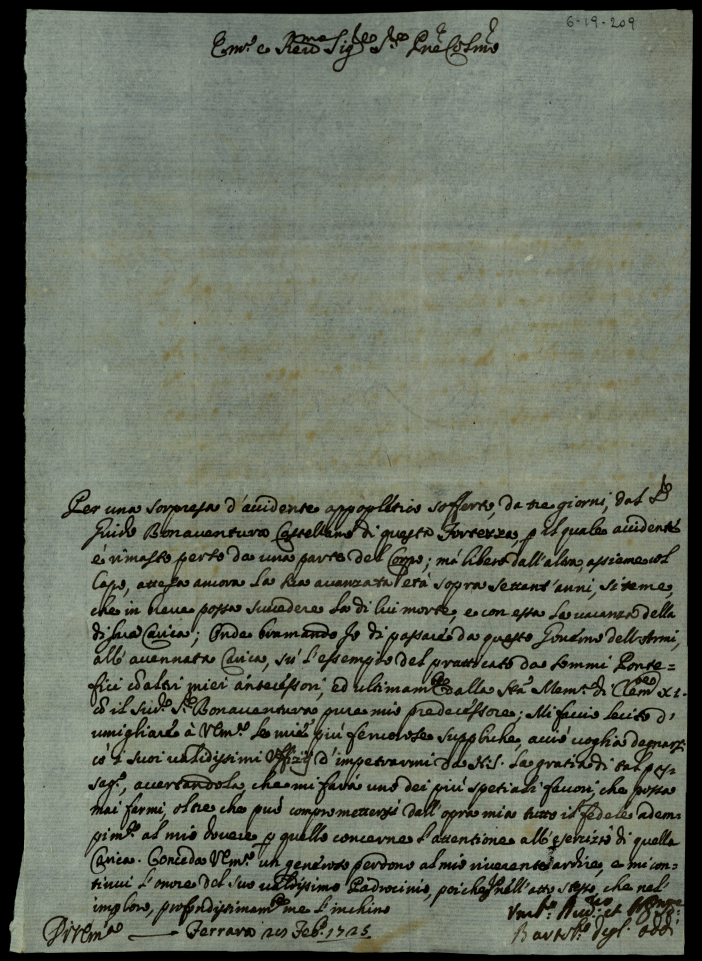 6-19-209
Em.o e Reu.mo Sig.re S.re P.ne Col.mo
Per una sorpresa d'accidente appopletico sofferto, da tre giorni, dal S.r
Guido Bonaventura Castellano di questa Fortezza, p il quale accidente
é rimasto perso da una parte del Corpo; má libero dall'altra, assieme col
Capo, attesa ancora la sua avanzata etá sopra settant'anni, si teme,
che in breve possa succedere la di lui morte, e con essa la vacanza della
di lui Carica; Onde bramando Io di passare da questo Gouerno dell'Armi,
all'accennata Carica, sú l'essempio del pratticato da sommi Ponte=
fici có altri miei antecessori, ed ultimam.te dalla S.ta Mem.a di Clem.te XI.
có il sud.o S.r Bonaventura pure mio predecessore; Mi faccio lecito d'
umigliare à V.Em.a le mie piú feruorose suppliche, acció uoglia degnarsi
có i suoi ualidissimi Uffizij d'impetrarmi da N.S. la gratia di tal pas-
sag.o, accertandola, che mi fará uno dei piú spetiali fauori, che possa
mai farmi, oltre che puó compromettersi dall'opra mia tutto il fedele adem-
pim.to al mio douere p quello concerne l'attentione all'esercizio di quella
Carica. Conceda V.Em.a un generoso perdono al mio riuerente ardire, e mi con-
tinui l'onore del suo ualidissimo Padrocinio, poiche nell'atto stesso, che nel'
imploro, profondissimam.te me l'inchino
Di V.Em.a Ferrara 20 Feb.o 1725
Um.o Diu.mo et
Bartol.o degl' Oddi